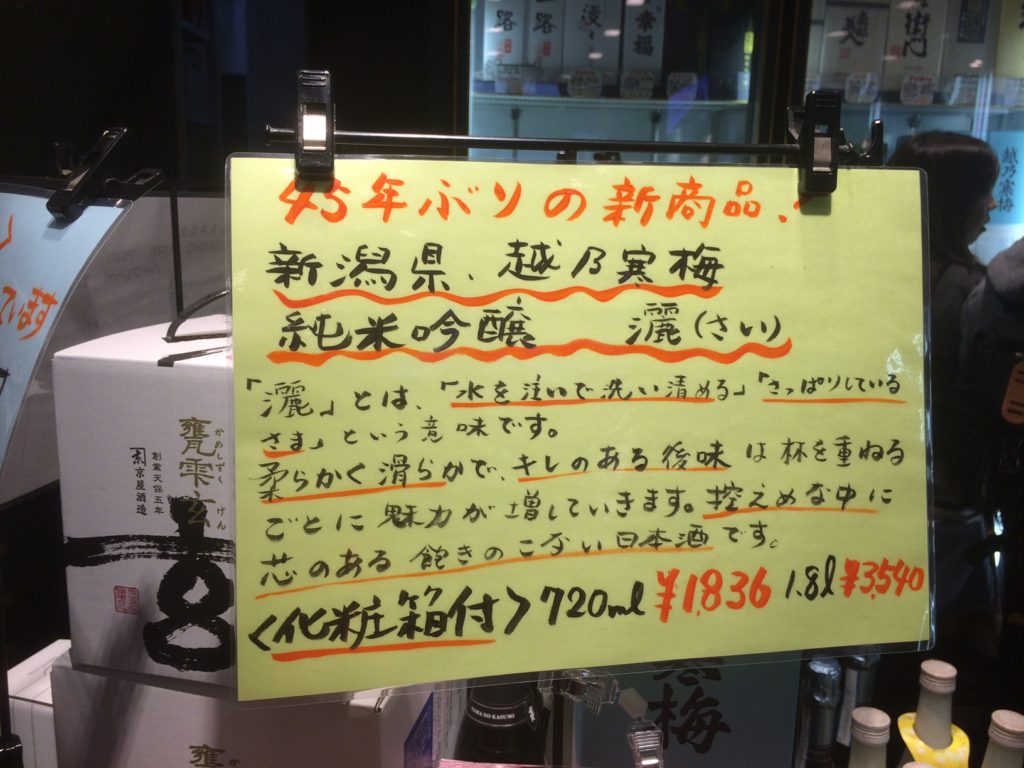 45年ぶりの新商品、
新潟県、越乃寒梅
純米吟醸 灑(さい)
「灑」とは、「水を注いで洗い清める」「さっぱりしている
さま」という意味です。
柔らかく滑らかで、キレのある後味は杯を重ねる
ごとに魅力が増していきます。控えめな中に
芯のある飽きのこない日本酒です。
<化粧箱付>720ml ¥1,836 1.8l ¥3,540
幸福
越乃寒梅
甕雫玄
かめしずく
げん
創業天保五年
京屋酒造
寒梅
甕